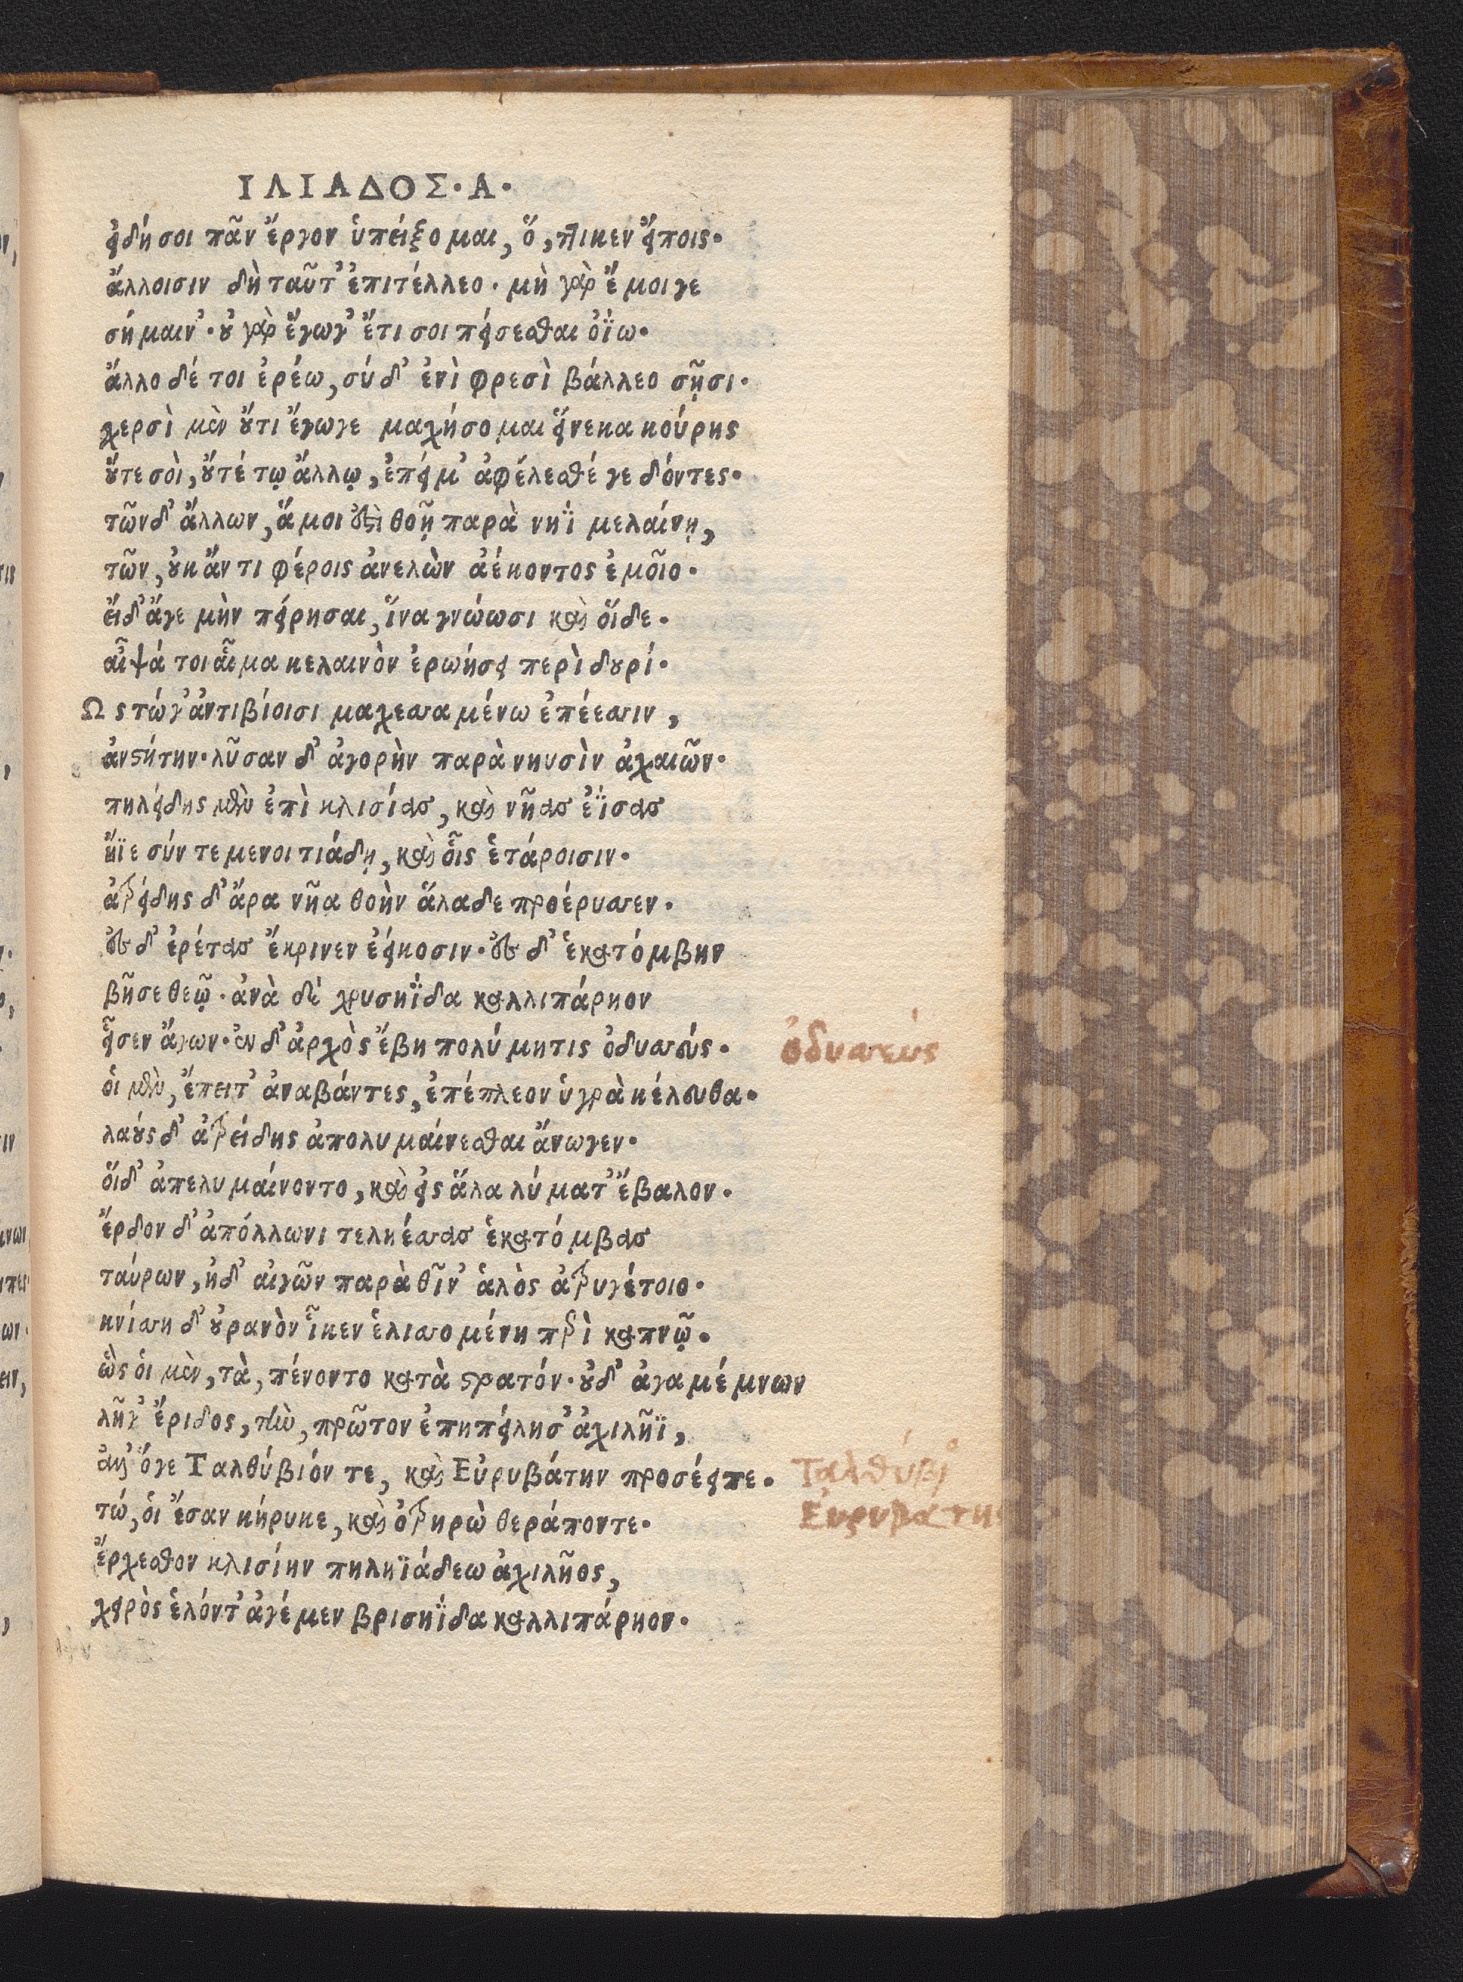 ΙΛΙΑΔΟΣ·Α·
εἰ δή σοι πᾶν ἔργον ὑπείξομαι, ὅ, τι κεν εἴποις·
ἄλλοισιν δὴ ταῦτ᾽ ἐπιτέλλεο· μὴ γὰρ ἔμοιγε
σήμαιν᾽· οὐ γὰρ ἔγωγ᾽ ἔτι σοι πείσεσθαι ὀΐω·
ἄλλο δέ τοι ἐρέω, σύ δ᾽ ἐνὶ φρεσὶ βάλλεο σῇσι·
χερσὶ μὲν οὔτι ἔγωγε μαχήσομαι εἵνεκα κούρης
οὔτε σοὶ, οὔτέ τῳ ἄλλῳ, ἐπεί μ᾽ ἀφέλεσθέ γε δόντες·
τῶν δ᾽ ἄλλων, ἅ μοι ἐστὶ θοῇ παρὰ νηῒ μελαίνῃ,
τῶν, οὐκ ἄν τι φέροις ἀνελὼν ἀέκοντος ἐμοῖο·
εἰ δ᾽ ἄγε μὴν πείρησαι, ἵνα γνώωσι καὶ οἵδε·
αἶψά τοι αἷμα κελαινὸν ἐρωήσει περὶ δουρί·
Ως τώγ᾽ ἀντιβίοισι μαχεσσαμένω ἐπέεσσιν,
ἀνστήτην· λῦσαν δ᾽ ἀγορὴν παρὰ νηυσὶν ἀχαιῶν·
πηλείδης μὲν ἐπὶ κλισίας, καὶ νῆας ἐΐσας
ἤϊε σύν τε μενοιτιάδῃ, καὶ οἷς ἑτάροισιν·
ἀτρείδης δ᾽ ἄρα νῆα θοὴν ἅλαδε προέρυσσεν·
ἐς δ᾽ ἐρέτας ἔκρινεν ἐείκοσιν· ἐς δ᾽ ἑκατόμβην
βῆσε θεῷ· ἀνὰ δὲ χρυσηΐδα καλλιπάρηον
εἷσεν ἄγων· ἐν δ᾽ ἀρχὸς ἔβη πολύμητις ὀδυσσεύς·
ὀδυσσεύς
οἱ μὲν, ἔπειτ᾽ ἀναβάντες, ἐπέπλεον ὑγρὰ κέλευθα·
λαοὺς δ᾽ ἀτρείδης ἀπολυμαίνεσθαι ἄνωγεν·
οἵδ᾽ ἀπελυμαίνοντο, καὶ εἰς ἅλα λύματ᾽ ἔβαλον·
ἔρδον δ᾽ ἀπόλλωνι τεληέσσας ἑκατόμβας
ταύρων, ἠδ᾽ αἰγῶν παρὰ θῖν᾽ ἁλὸς ἀτρυγέτοιο·
κνίσση δ᾽ οὐρανὸν ἷκεν ἑλισσομένη περὶ καπνῷ·
ὣς οἱ μὲν, τὰ, πένοντο κατὰ στρατόν· οὐδ᾽ ἀγαμέμνων
λῆγ᾽ ἔριδος, τὴν, πρῶτον ἐπηπείλησ᾽ ἀχιλῆϊ,
ἀλλ᾽ ὅγε Ταλθύβιόν τε, καὶ Εὐρυβάτην προσέειπε·
Ταλθύβιος
τώ, οἱ ἔσαν κήρυκε, καὶ ὀτρηρὼ θεράποντε·
Εὐρυβάτης
ἔρχεσθον κλισίην πηληϊάδεω ἀχιλῆος,
χειρὸς ἑλόντ᾽ ἀγέμεν βρισηΐδα καλλιπάρηον·